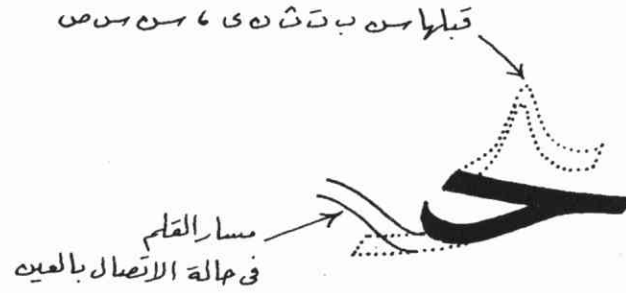 قبلها سن ب ت ث ن ى ، سن س ص
مسار القلم
فى حالة الاتصال بالعين